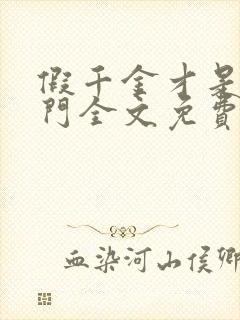 假千金才是
門全文免費
血染河山侯卿